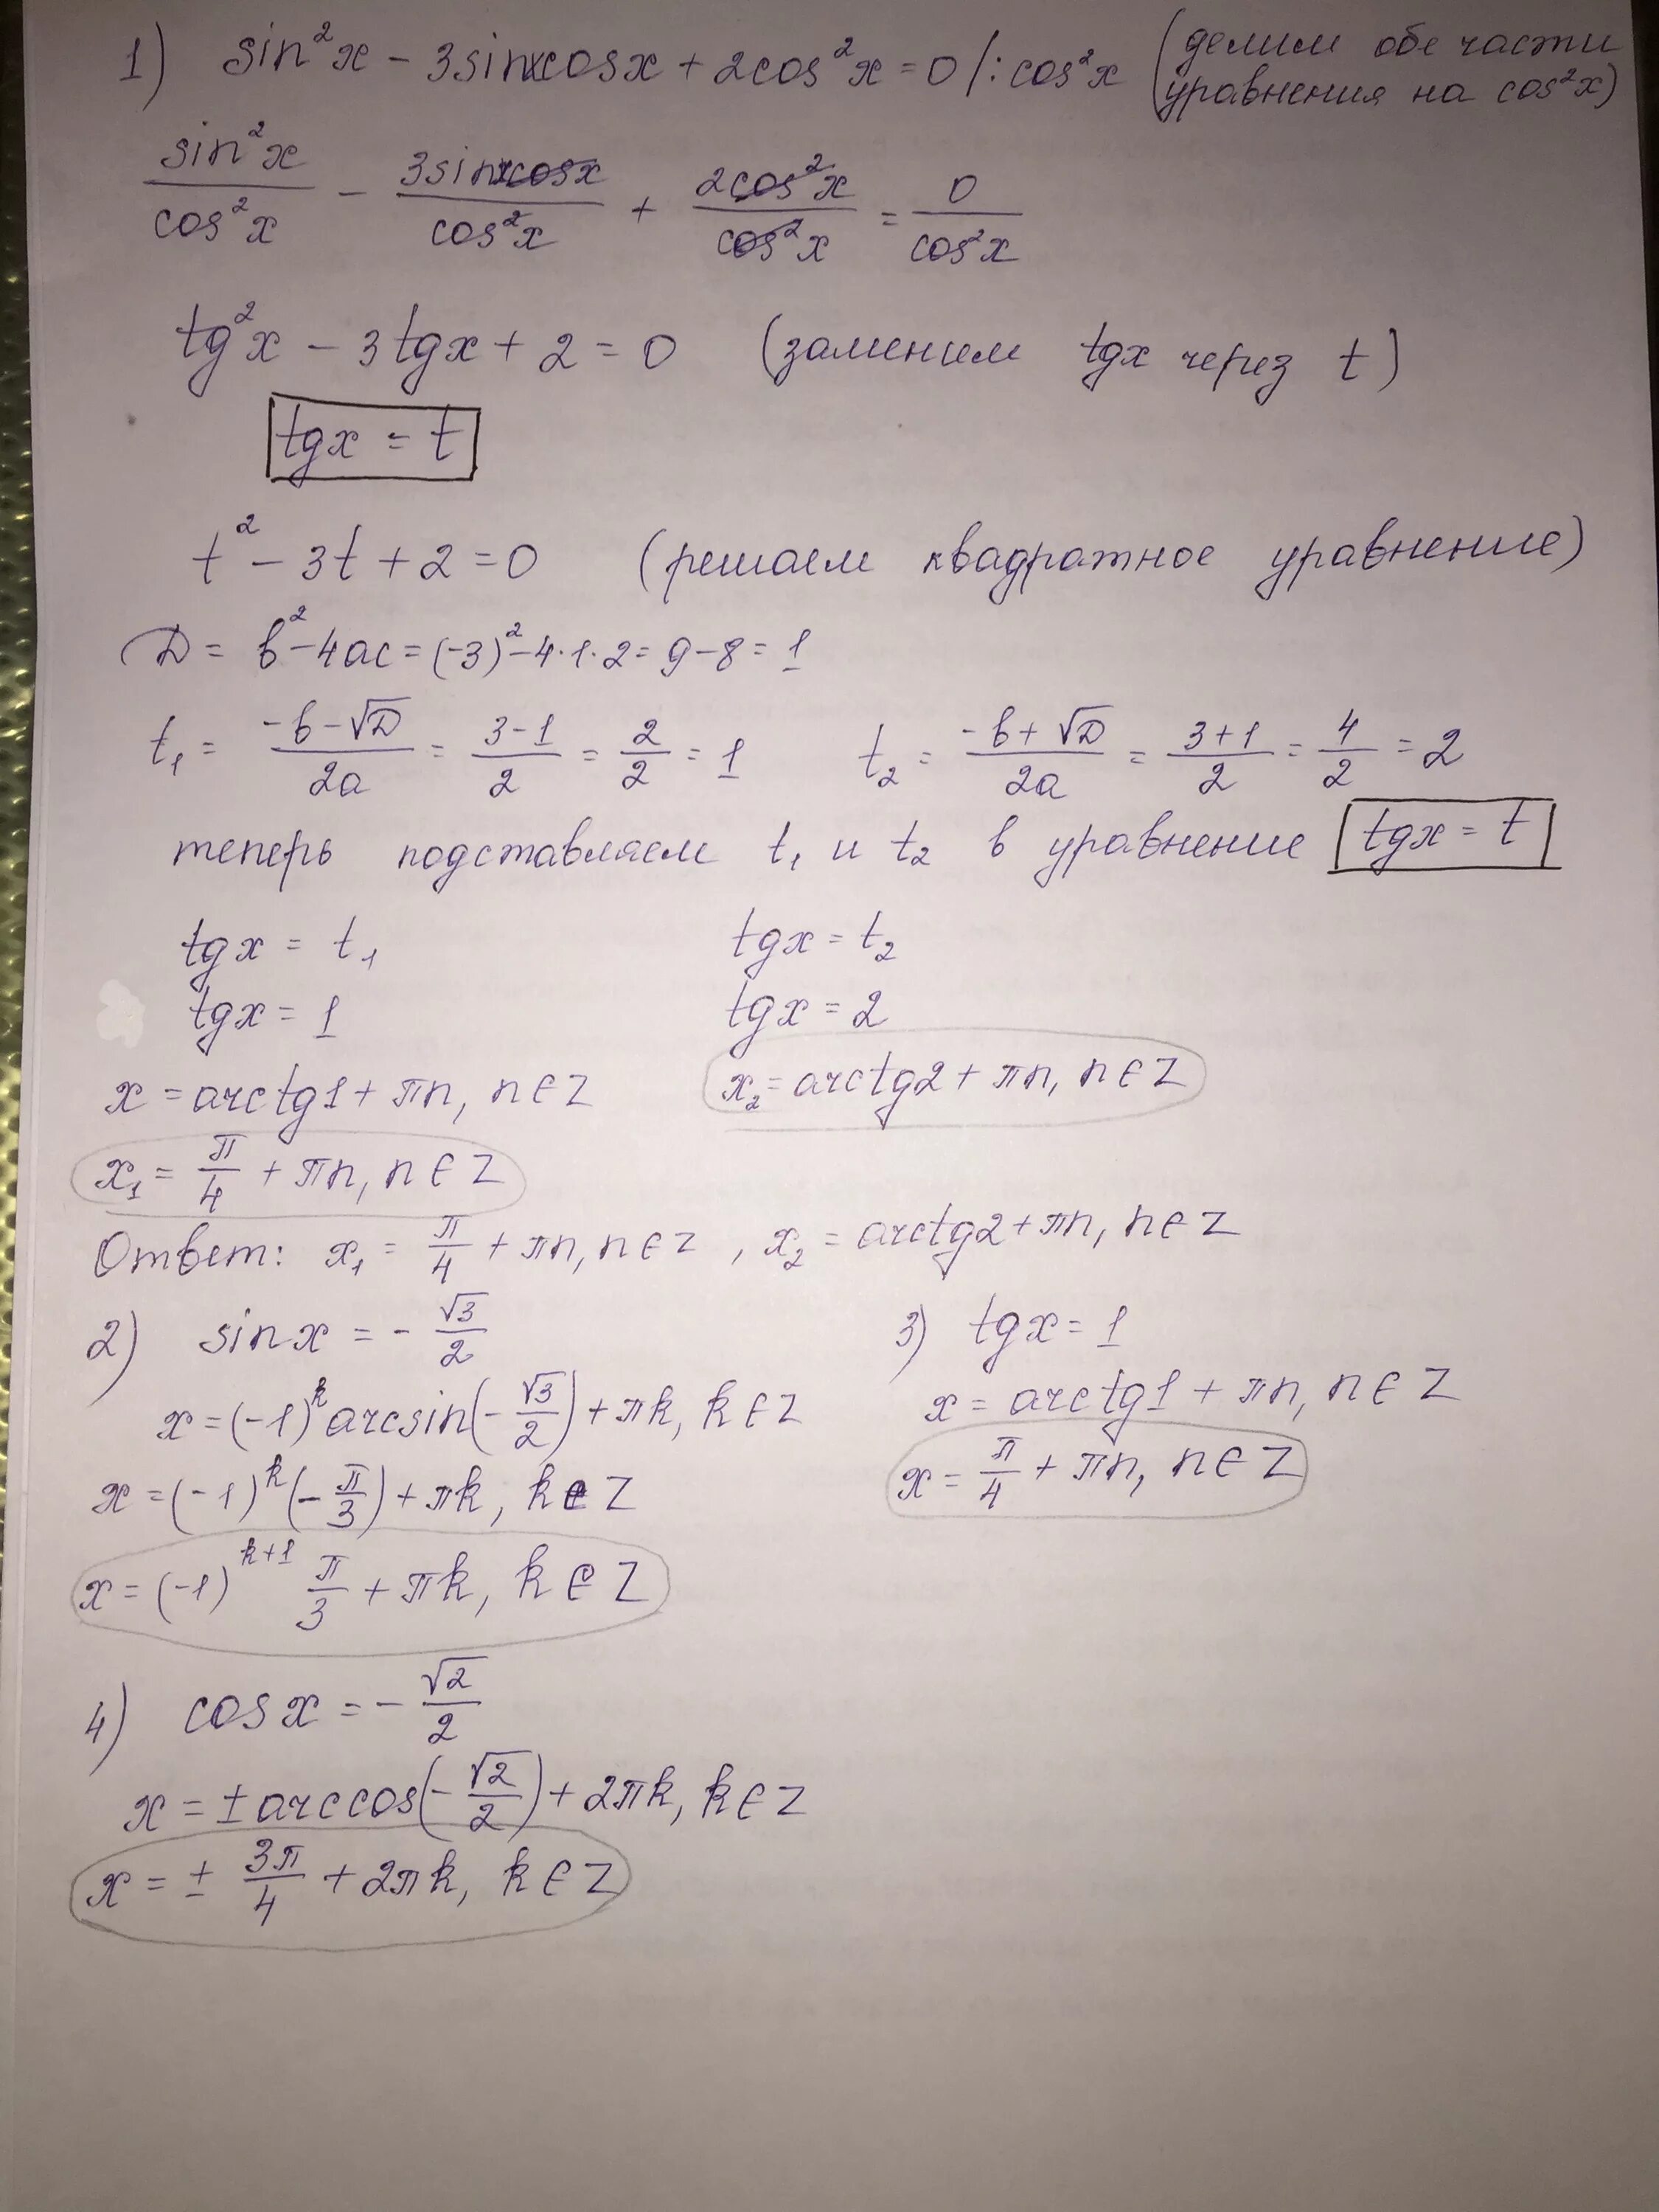 1) sin²x - 3sinxcosx + 2cos²x = 0 /: cos²x (делим обе части уравнения на cos²x)
sin²x/cos²x - 3sinxcosx/cos²x + 2cos²x/cos²x = 0/cos²x
tg²x - 3tgx + 2 = 0 (заменим tgx через t)
tgx = t
t² - 3t + 2 = 0 (решаем квадратное уравнение)
D = b² - 4ac = (-3)² - 4·1·2 = 9 - 8 = 1
t₁ = (-b - √D)/2a = (3-1)/2 = 2/2 = 1 t₂ = (-b + √D)/2a = (3+1)/2 = 4/2 = 2
теперь подставляем t₁ и t₂ в уравнение tgx = t
tgx = t₁ tgx = t₂
tgx = 1 tgx = 2
x = arctg1 + πn, n∈Z x₂ = arctg2 + πn, n∈Z
x₁ = π/4 + πn, n∈Z
Ответ: x₁ = π/4 + πn, n∈Z, x₂ = arctg2 + πn, n∈Z
2) sinx = -√3/2 3) tgx = 1
x = (-1)ᵏ arcsin(-√3/2) + πk, k∈Z x = arctg1 + πn, n∈Z
x = (-1)ᵏ(-π/3) + πk, k∈Z x = π/4 + πn, n∈Z
x = (-1)ᵏ⁺¹ π/3 + πk, k∈Z
4) cosx = -√2/2
x = ± arccos(-√2/2) + 2πk, k∈Z
x = ± 3π/4 + 2πk, k∈Z